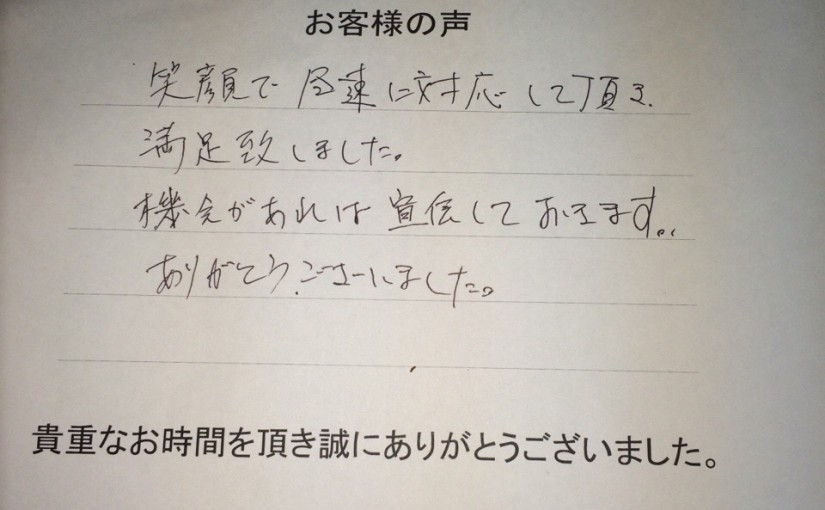 お客様の声
笑顔で 早速に対応して頂き、
満足致しました。
機会があれば 宣伝しておきます。
ありがとうございました。
貴重なお時間を頂き誠にありがとうございました。